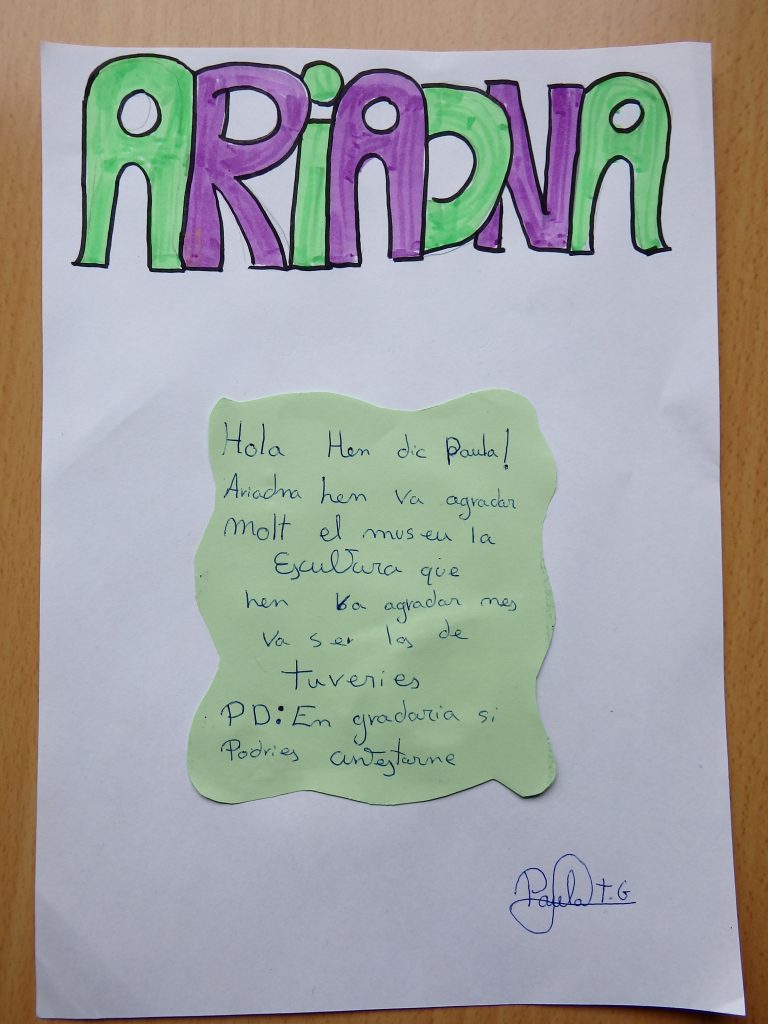 ARiADNA
Hola Hen dic Paula!
Ariadna hen va agradar
Molt el museu la
Escultura que
hen va agradar mes
va ser las de
tuveries
PD: En gradaria si
Podries contestarne
Paula T.G